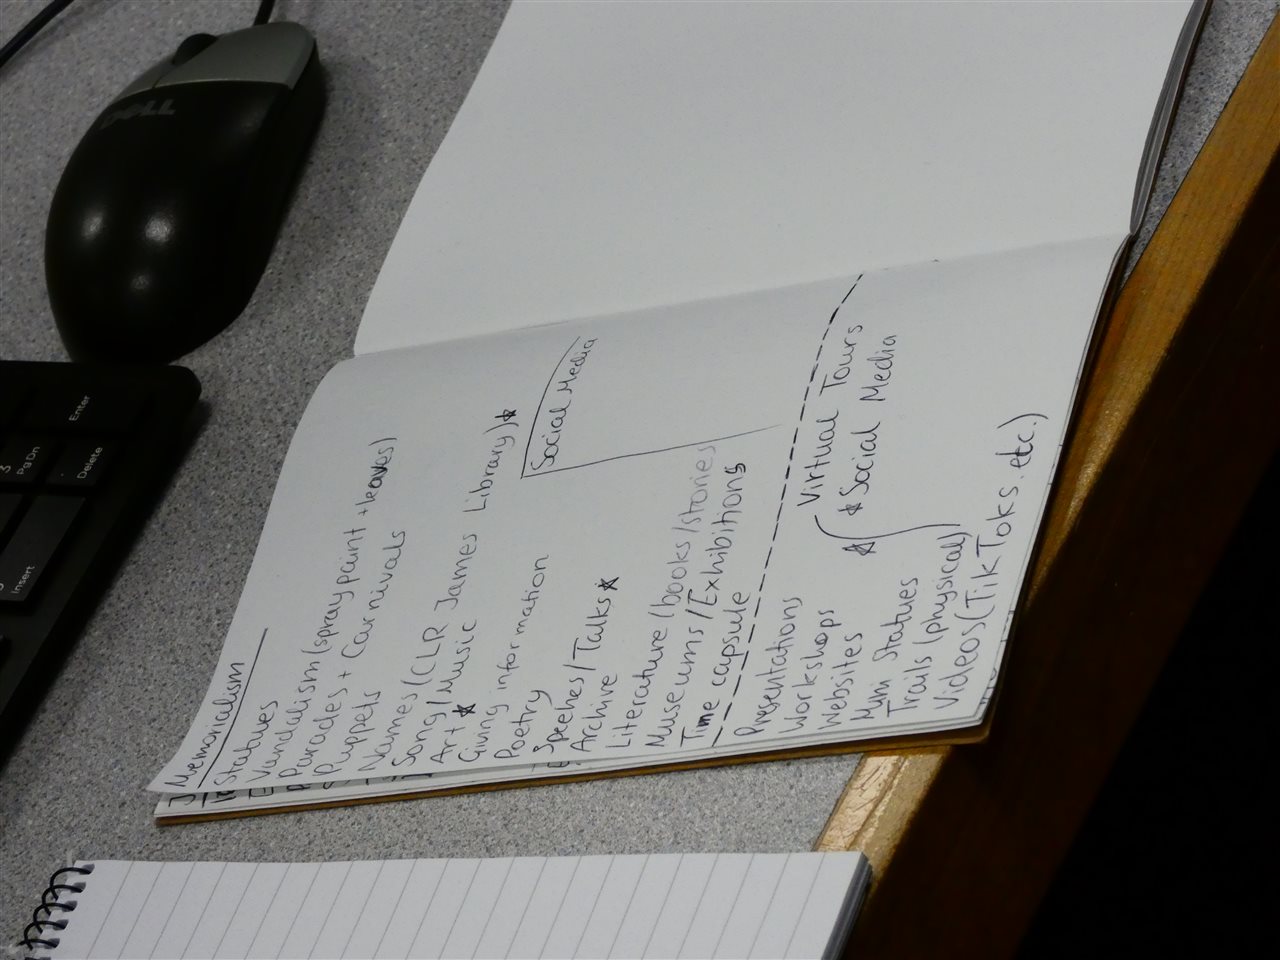 Memorialism
Statues
Vandalism (spray paint + leaves)
Parades + Carnivals
Puppets
Names (CLR James Library) ★
Song/Music
Art ★
Giving information
Poetry
Speehes/Talks ★
Archive
Literature (books/stories
Museums/Exhibitions
Time capsule
Social Media
Presentations
Workshops
Websites
Mini Statues
Trails (physical)
Videos (TikToks. etc.)
★ Virtual Tours
★ Social Media
DELL
Enter
3
PgDn
Delete
Insert